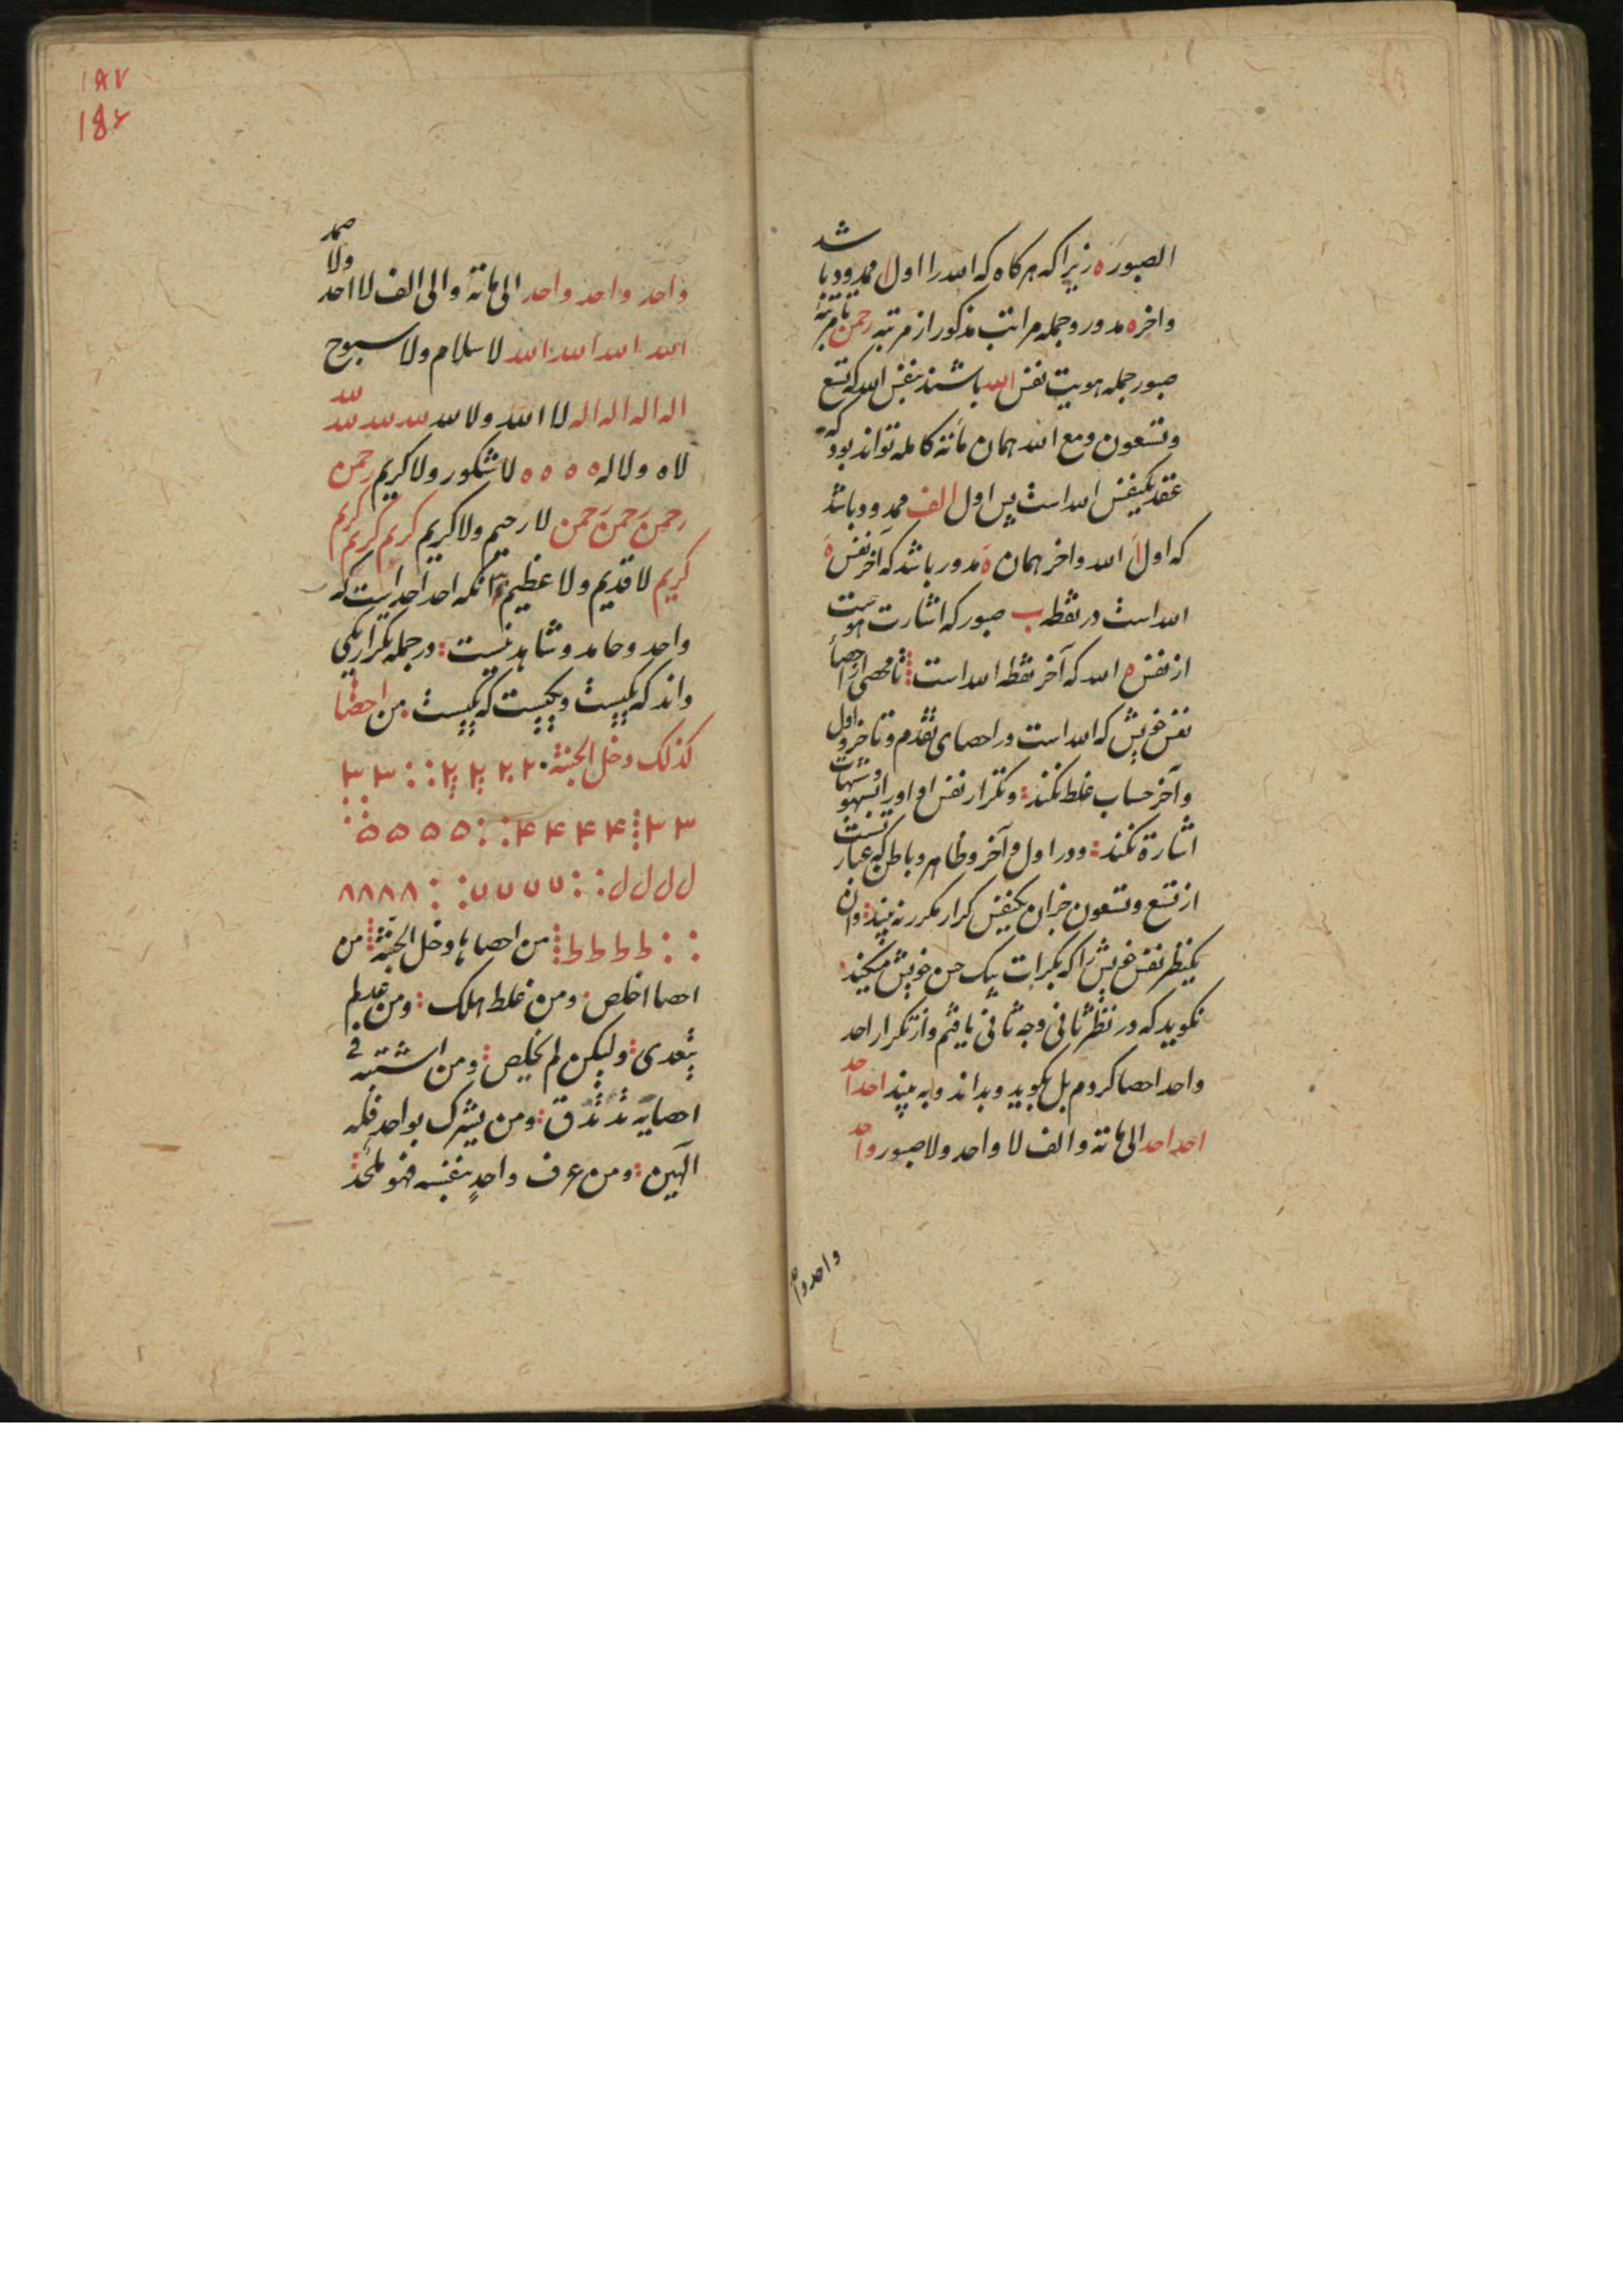 الصبوره زیرا که هر کاه که الله را اول ا ممدود باشد
واخره مدور وجمله مراتب مذکور از مرتبه رحمن تا مرتبه
صبور جمله هویت نفس الله باشند بنفس الله که تسع
وتسعون ومع الله همان مائة کامله تواند بود که
عقد یکنفس الله است پس اول الف ممدود باشد
که اول ا الله واخر همان ه مدور باشد که آخر نفس ه
الله است در نقطه ب صبور که اشارت هویت
از نفس ه الله که آخر نقطه الله است تا محصی از احصا
نفس خویش که الله است در احصای تقدم وتاخر واول
وآخر حساب غلط نکند وتکرار نفس او اورا
اشارة نکند ودر اول وآخر وظاهر وباطن که عبار
از تسع وتسعون جز آن یکنفس کرار مکرر نه بیند وان
یکنظر نفس خویش را که بکرات یک حسن خویش میکند
نکوید که در نظر ثانی وجه ثانی یافتم واز تکرار احد
واحد احصا کردم بل بکوید وبداند وبه بیند احد احد
احد احد الی مائة والف لا واحد ولا صبور واحد
واحد واحد
۱۸۷
۱۸۶
واحد واحد واحد الی مائة والی الف لا احد ولا صمد
الله الله الله الله لا سلام ولا سبوح
اله اله اله اله لا الله ولا لله لله لله لله لله
لاه ولا له ه ه ه ه لا شکور ولا کریم رحمن
رحمن رحمن رحمن لا رحیم ولا کریم کریم کریم کریم
کریم لا قدیم ولا عظیم انکه احد احد است که
واحد وحامد وشاهد نیست در جمله تکرار یکی
داند که یکیست ویکیست که یکیست من احصا
کذلک دخل الجنة ۲ ۲ ۲ ۲ ۳ ۳
۳ ۳ ۴ ۴ ۴ ۴ ۵ ۵ ۵ ۵
ل ل ل ل ۷ ۷ ۷ ۷ ۸ ۸ ۸ ۸
ط ط ط ط من احصاها دخل الجنة من
احصا اخلص ومن غلط اهلک ومن عد لم
یتعدی ولیکن لم یخلص ومن اشتبه فی
احصایه ومن یشرک بواحد فله
الهین ومن عرف واحد بنفسه فهو ملحد